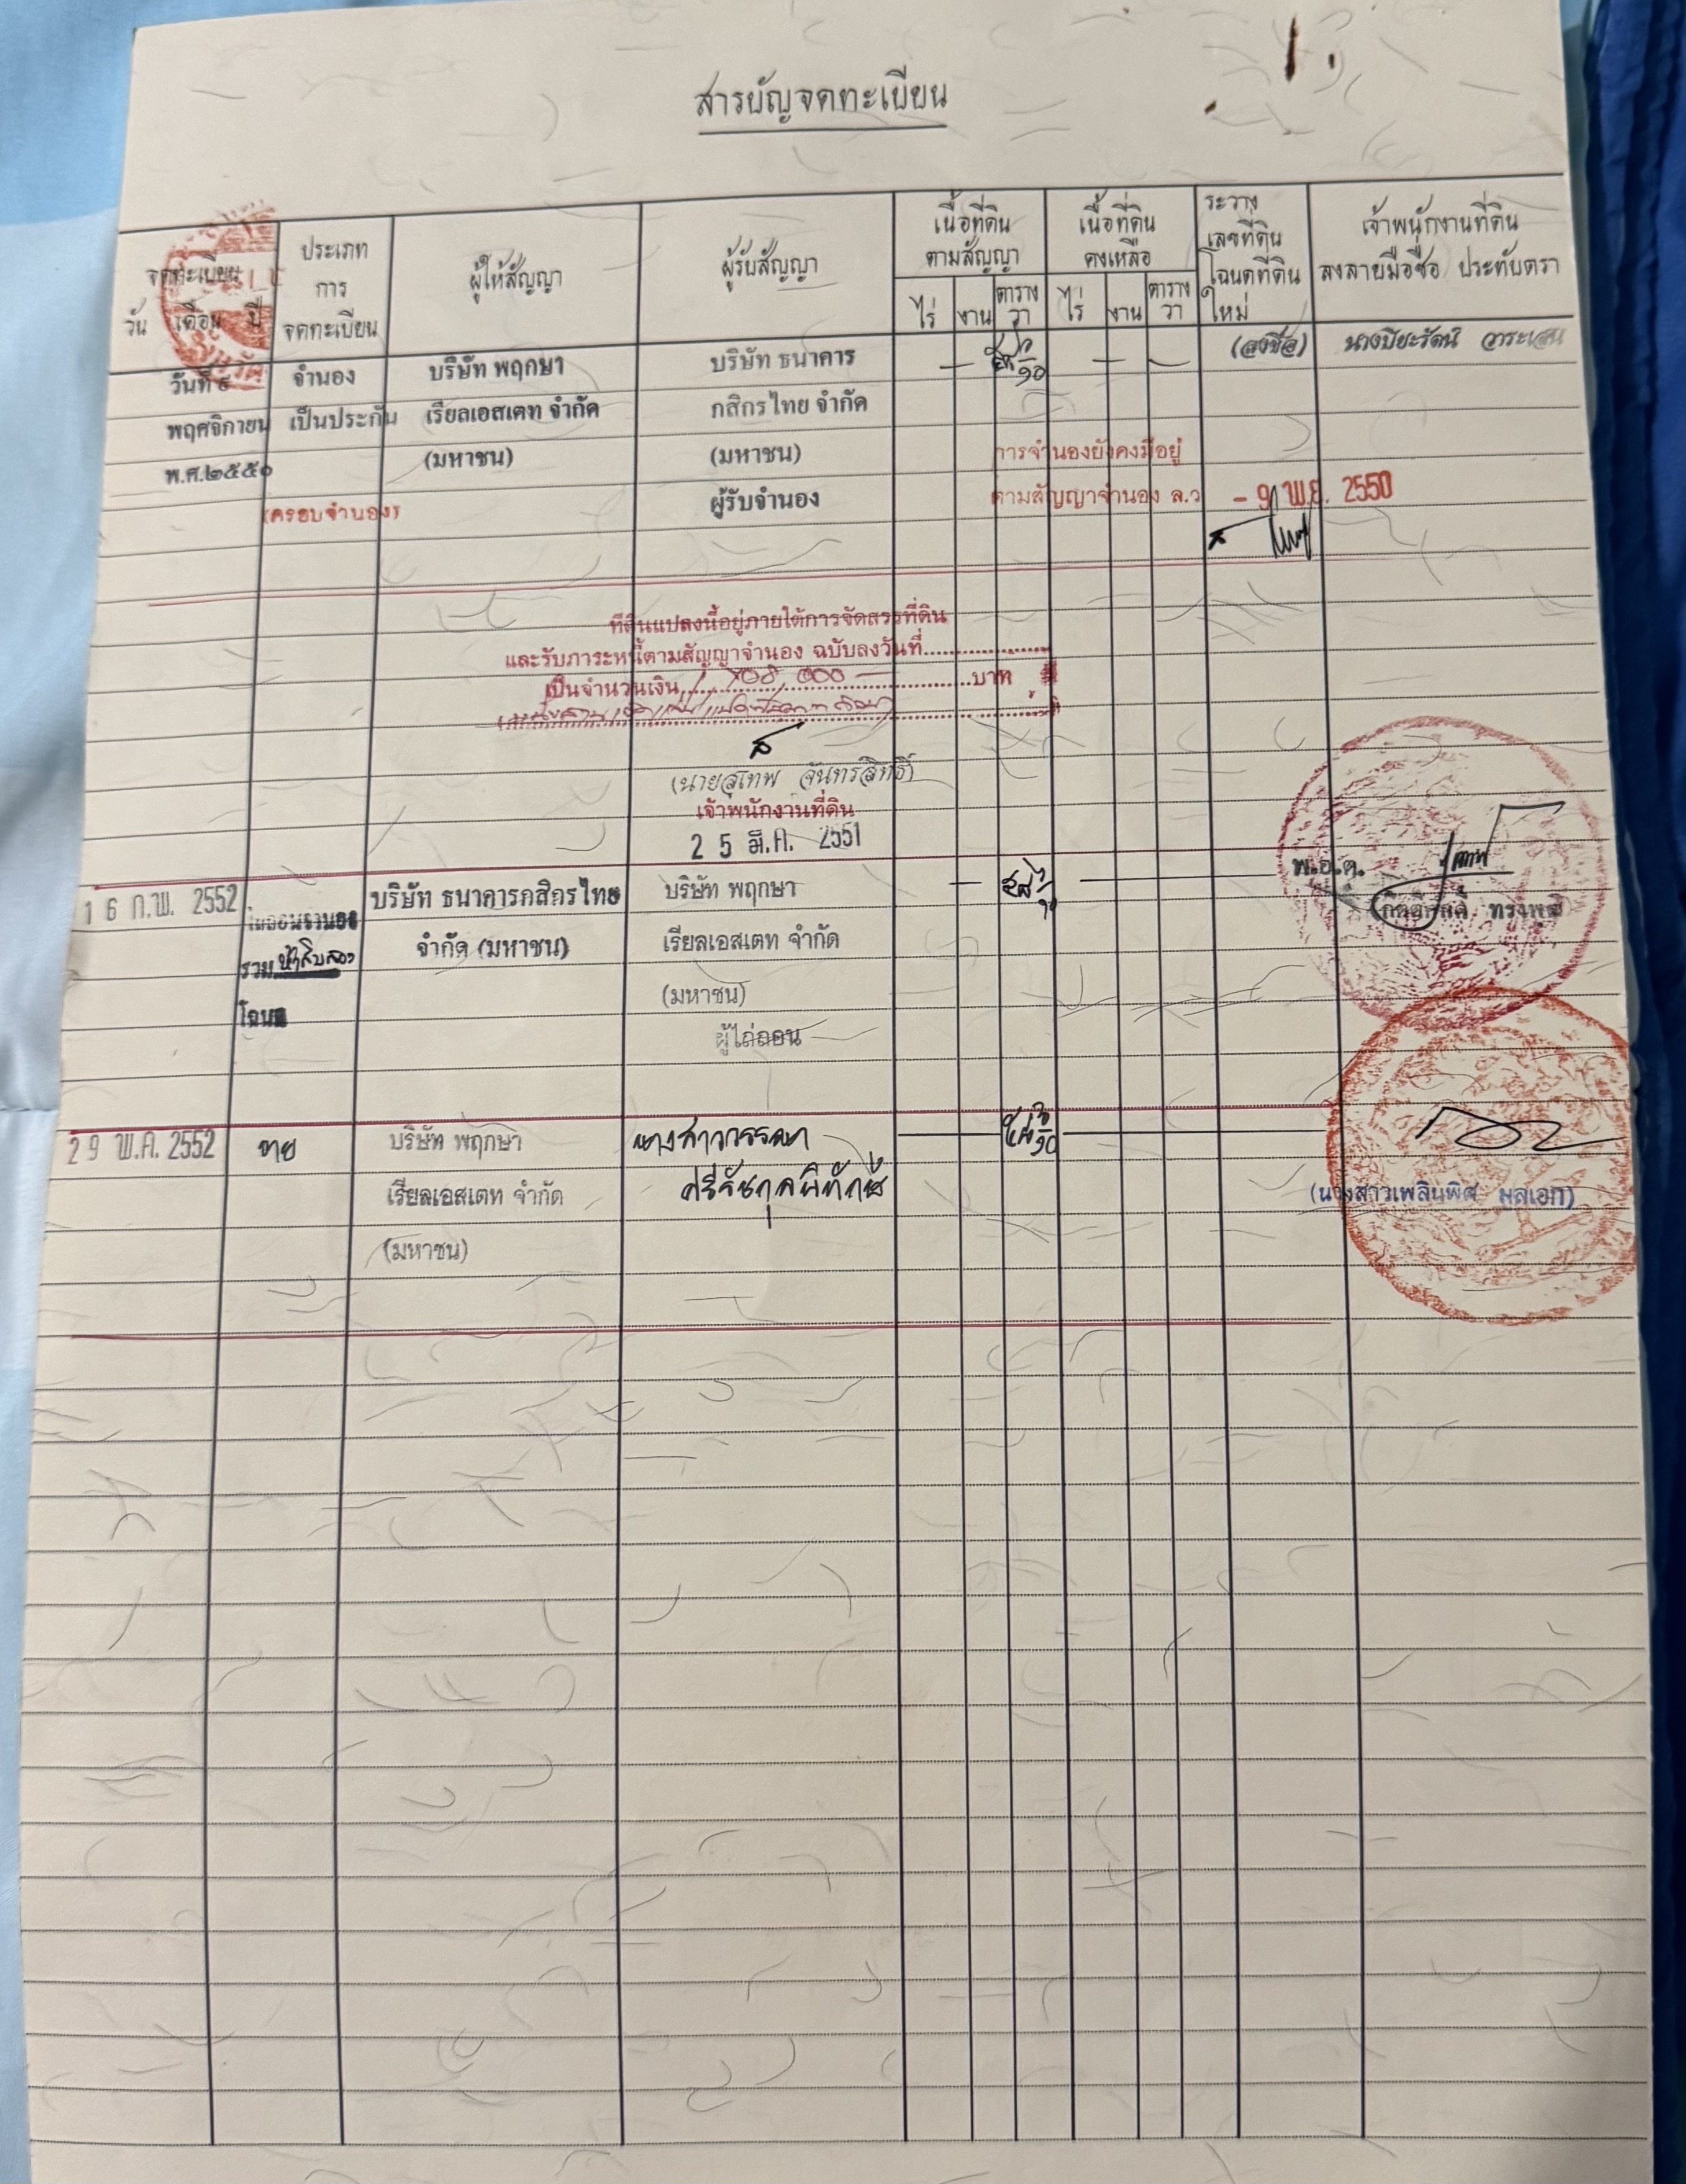 สารบัญจดทะเบียน
จดทะเบียน
วัน เดือน ปี
ประเภท
การ
จดทะเบียน
ผู้ให้สัญญา
ผู้รับสัญญา
เนื้อที่ดิน
ตามสัญญา
ไร่ งาน ตาราง
วา
เนื้อที่ดิน
คงเหลือ
ไร่ งาน ตาราง
วา
ระวาง
เลขที่ดิน
โฉนดที่ดิน
ใหม่
เจ้าพนักงานที่ดิน
ลงลายมือชื่อ ประทับตรา
วันที่
พฤศจิกายน
พ.ศ.๒๕๕๐
จำนอง
เป็นประกัน
(ครอบจำนอง)
บริษัท พฤกษา
เรียลเอสเตท จำกัด
(มหาชน)
บริษัท ธนาคาร
กสิกรไทย จำกัด
(มหาชน)
ผู้รับจำนอง
(ลงชื่อ) นางปิยะรัตน์
การจำนองยังคงมีอยู่
ตามสัญญาจำนอง ล.ว - 9 พ.ย. 2550
ที่ดินแปลงนี้อยู่ภายใต้การจัดสรรที่ดิน
และรับภาระหนี้ตามสัญญาจำนอง ฉบับลงวันที่
เป็นจำนวนเงิน 708,000 บาท
(นายสุเทพ จันทรสิทธิ์)
เจ้าพนักงานที่ดิน
2 5 มี.ค. 2551
1 6 ก.พ. 2552
รวมห้าสิบสอง
โฉนด
บริษัท ธนาคารกสิกรไทย
จำกัด (มหาชน)
บริษัท พฤกษา
เรียลเอสเตท จำกัด
(มหาชน)
ผู้ไถ่ถอน
พ.อ.ต.
2 9 พ.ค. 2552
ขาย
บริษัท พฤกษา
เรียลเอสเตท จำกัด
(มหาชน)
นางสาววรรณา
(นางสาวเพลินพิศ